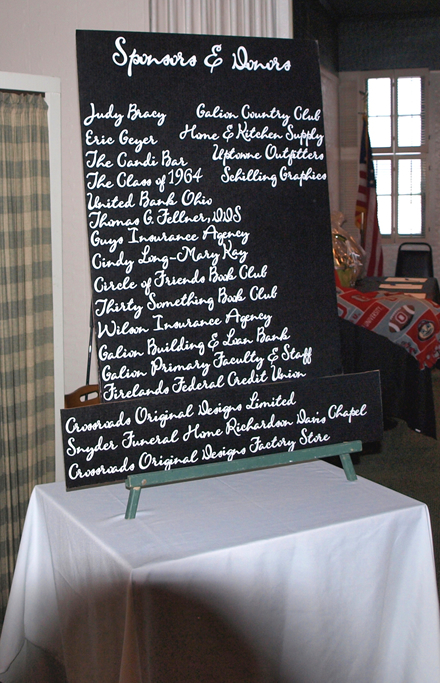 Sponsors & Donors
Judy Bracy Galion Country Club
Eric Geyer Home & Kitchen Supply
The Candi Bar Uptowne Outfitters
The Class of 1964 Schilling Graphics
United Bank Ohio
Thomas G. Fellner, DDS
Guys Insurance Agency
Cindy Long-Mary Kay
Circle of Friends Book Club
Thirty Something Book Club
Wilson Insurance Agency
Galion Building & Loan Bank
Galion Primary Faculty & Staff
Firelands Federal Credit Union
Crossroads Original Designs Limited
Snyder Funeral Home Richardson Davis Chapel
Crossroads Original Designs Factory Store